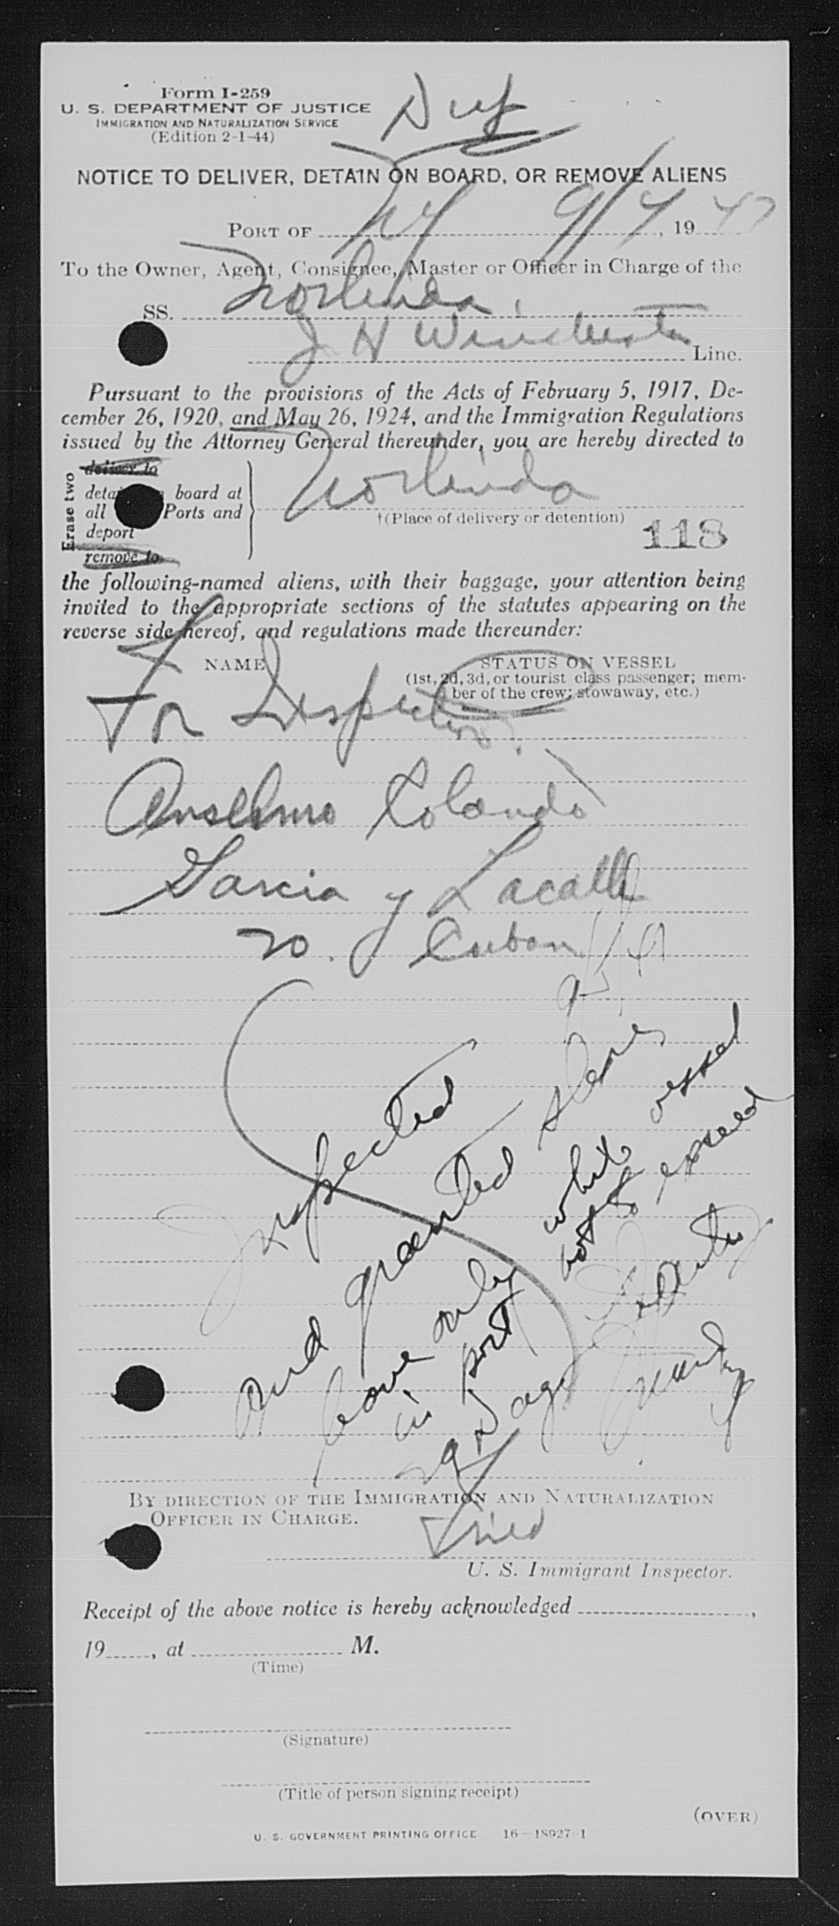 Form I-259
U. S. DEPARTMENT OF JUSTICE
IMMIGRATION AND NATURALIZATION SERVICE
(Edition 2-1-44)
NOTICE TO DELIVER, DETAIN ON BOARD, OR REMOVE ALIENS
PORT OF NY 9/7, 1947
To the Owner, Agent, Consignee, Master or Officer in Charge of the
SS. Norlinda,
J H Winchester Line.
Pursuant to the provisions of the Acts of February 5, 1917, De-
cember 26, 1920, and May 26, 1924, and the Immigration Regulations
issued by the Attorney General thereunder, you are hereby directed to
Erase two
deliver to
detain on board at
all Ports and
deport
remove to
Norlinda
†(Place of delivery or detention)
118
the following-named aliens, with their baggage, your attention being
invited to the appropriate sections of the statutes appearing on the
reverse side hereof, and regulations made thereunder:
NAME
STATUS ON VESSEL
(1st, 2d, 3d, or tourist class passenger; mem-
ber of the crew; stowaway, etc.)
For Inspection.
Anselmo Rolando
Garcia y Lacalle
20. Cuban
Inspected
and granted shore
leave only while vessel
in port not to exceed
29 days
BY DIRECTION OF THE IMMIGRATION AND NATURALIZATION
OFFICER IN CHARGE.
U. S. Immigrant Inspector.
Receipt of the above notice is hereby acknowledged
19, at M.
(Time)
(Signature)
(Title of person signing receipt)
(OVER)
U. S. GOVERNMENT PRINTING OFFICE 16—18927-1